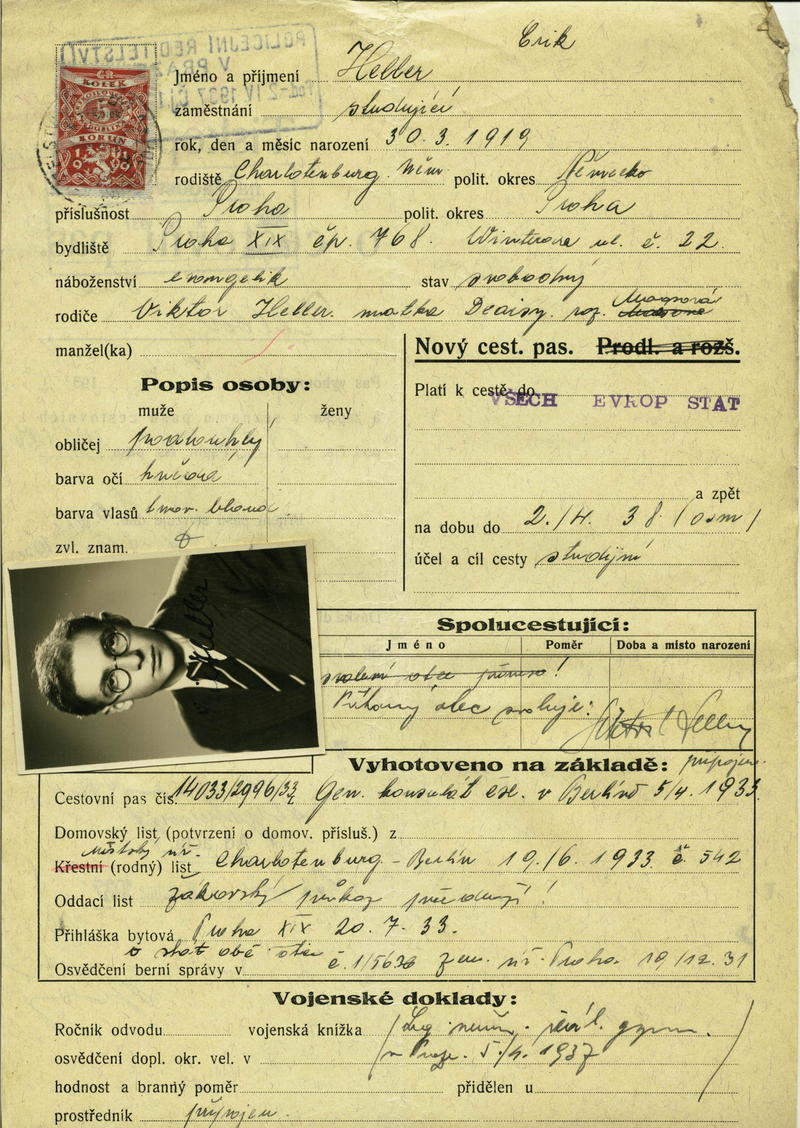 Erik
Jméno a příjmení Heller
zaměstnání studující
rok, den a měsíc narození 30. 3. 1919
rodiště Charlotenburg. Něm. polit. okres Německo
příslušnost Praha polit. okres Praha
bydliště Praha XIX čp. 768. Winterova ul. č. 22
náboženství evangelík stav svobodný
rodiče Viktor Heller. matka Deaisy. roz. Magnová
manžel(ka)
Nový cest. pas. Prodl. a rozš.
Popis osoby:
Platí k cestě do VŠECH EVROP STAT
muže ženy
obličej podlouhlý
barva očí hnědá
a zpět
barva vlasů tmav. blond
na dobu do 2./4. 38 (osm)
zvl. znam.
účel a cíl cesty studijní
Heller
Spolucestující:
Jméno Poměr Doba a místo narození
Přítomný otec svoluje: Viktor Heller
Vyhotoveno na základě: připojen.
Cestovní pas čís. 14033/2996/33 Gen. konsulát čsl. v Berlíně 5/4. 1933.
Domovský list (potvrzení o domov. přísluš.) z
Křestní (rodný) list Charlotenburg - Berlín 19./6. 1933. č. 542
Oddací list žákovský průkaz předloží!
Přihláška bytová Praha XIX 20. 7. 33.
o stát obč. otce
Osvědčení berní správy v č. 1/5636 zem. úř. Praha. 19/12. 31
Vojenské doklady:
Ročník odvodu vojenská knížka
osvědčení dopl. okr. vel. v v Praze. 5./4. 1937
hodnost a branný poměr přidělen u
prostředník připojen.
KOLEK
KORUN
POLICEJNÍ ŘEDITELSTVÍ
V PRAZE
-2 IV 1937